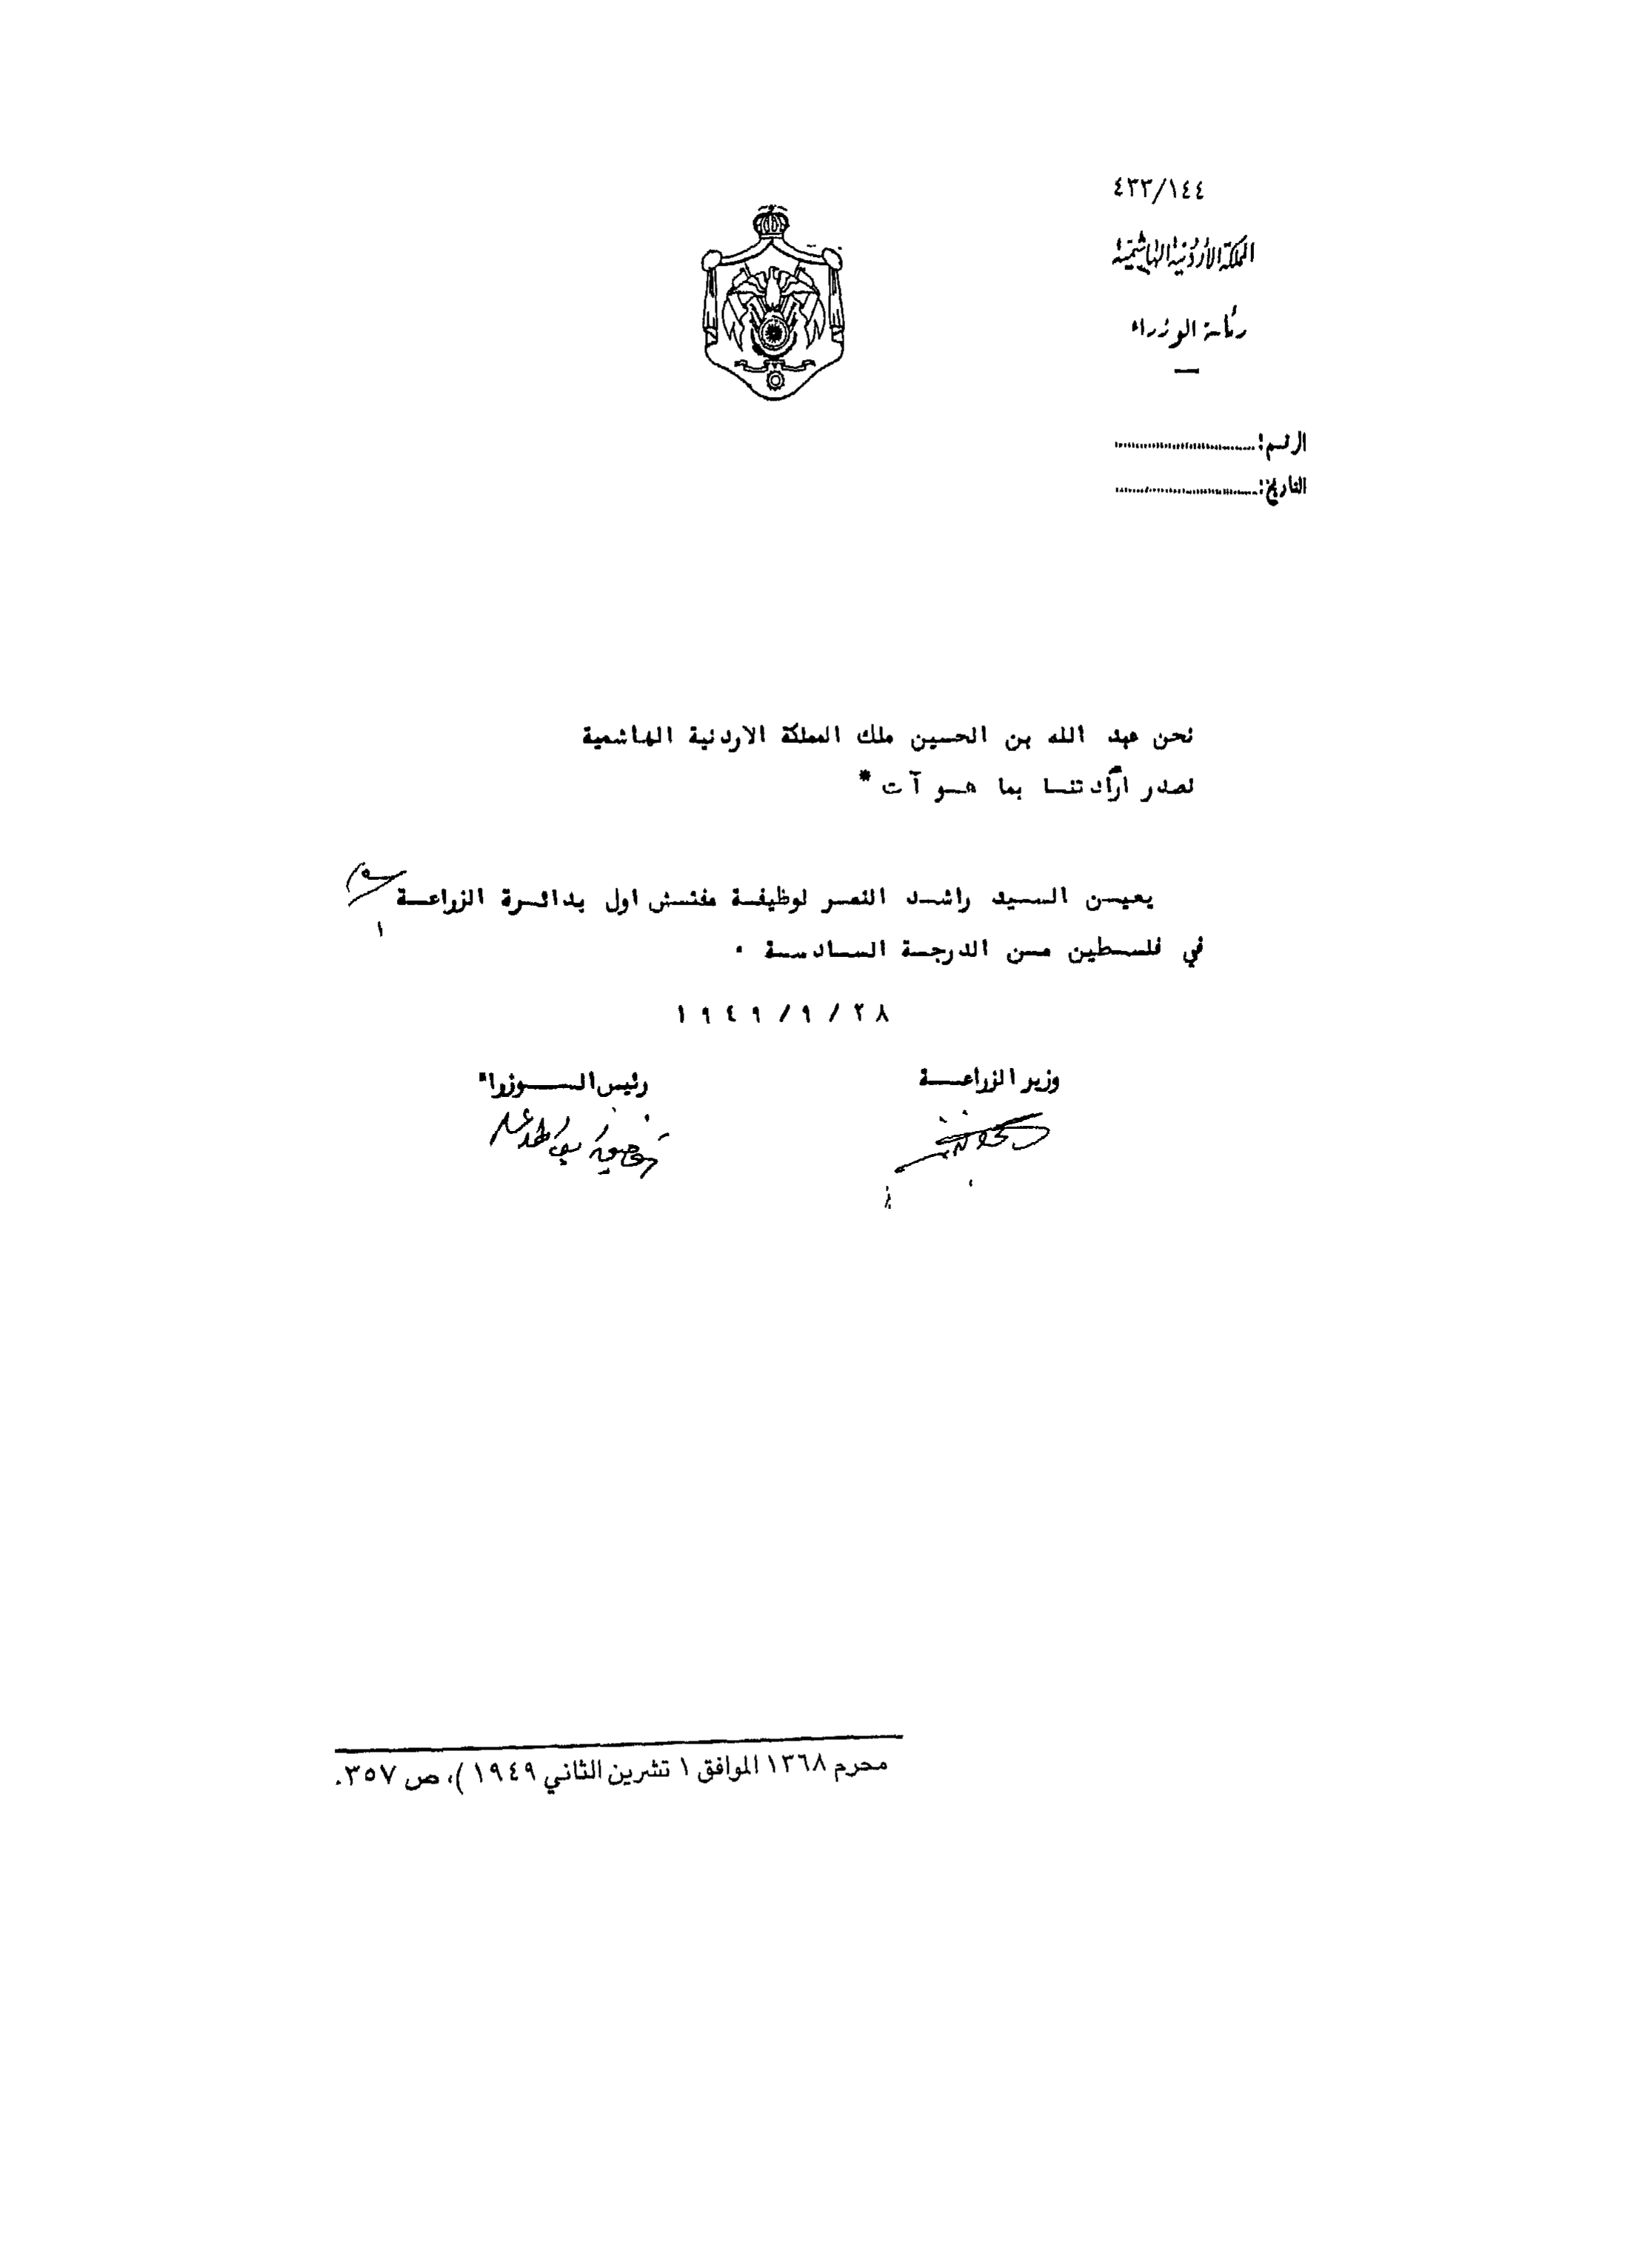 ٤٣٣/١٤٤
المملكة الأردنية الهاشمية
رئاسة الوزراء
الرقم:
التاريخ:
نحن عبد الله بن الحسين ملك المملكة الاردنية الهاشمية
نصدر ارادتنا بما هو آت *
يعين السيد راشد النمر لوظيفة مفتش اول بدائرة الزراعة
في فلسطين من الدرجة السادسة ٠
٢٨ / ٩ / ١٩٤٩
وزير الزراعة
رئيس الوزراء
محرم ١٣٦٨ الموافق ١ تشرين الثاني ١٩٤٩)، ص ٣٥٧.